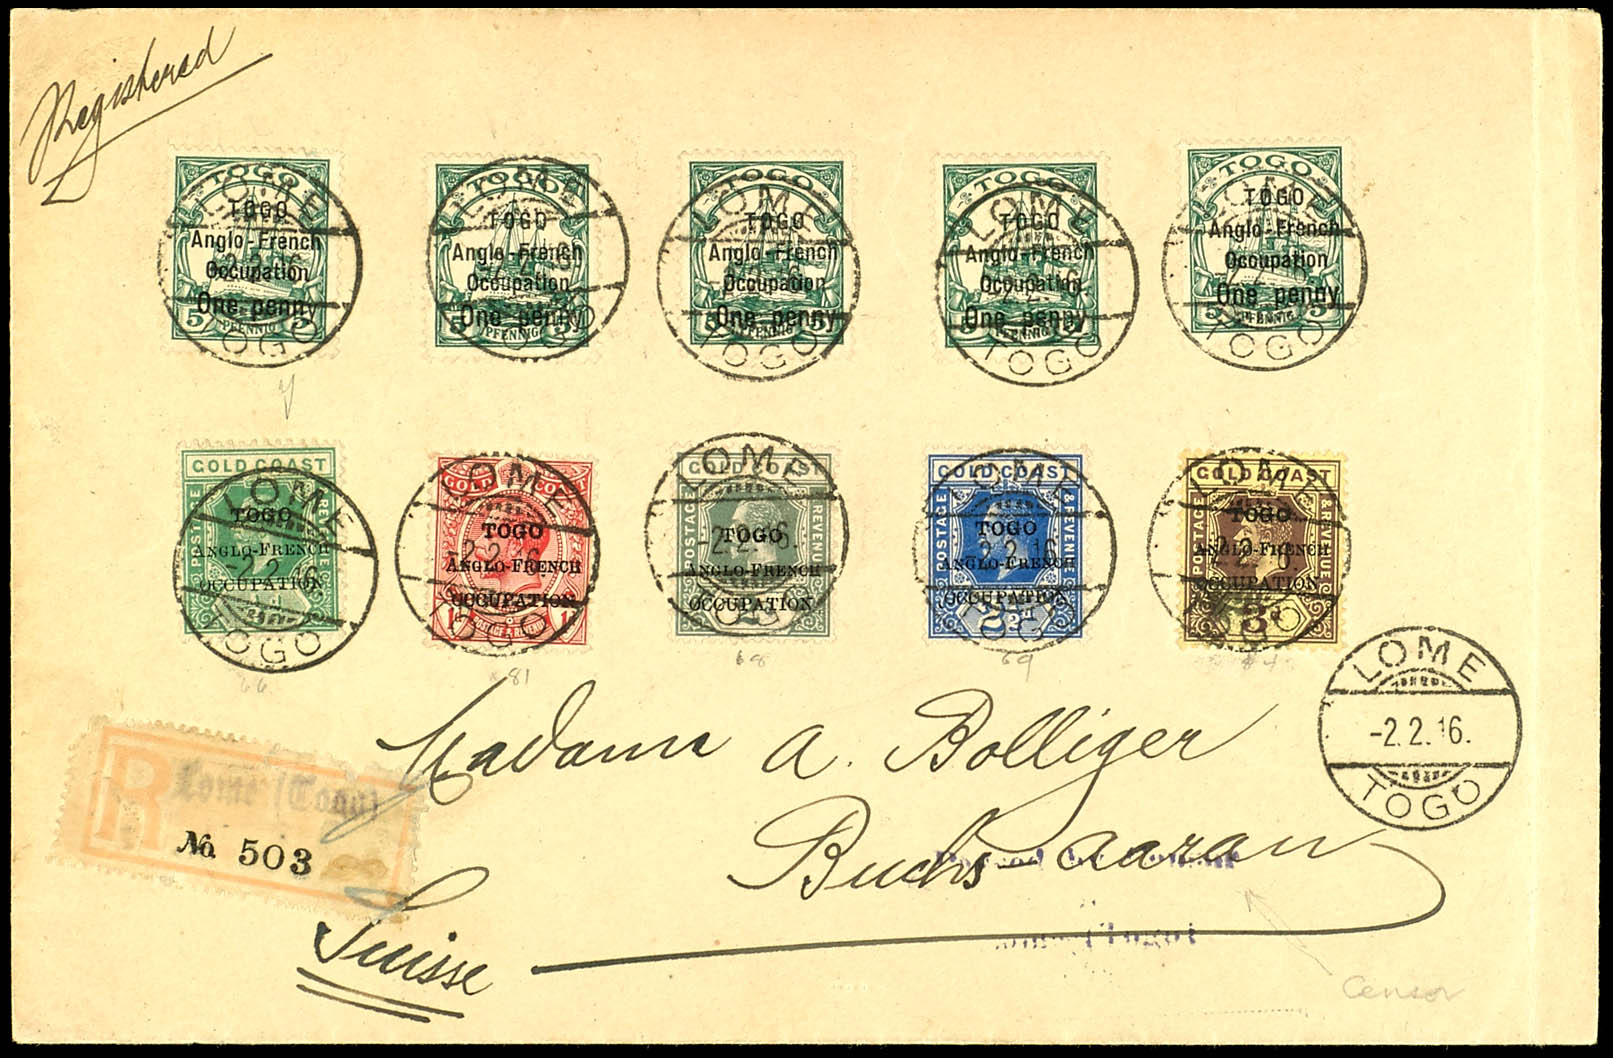 Registered
TOGO
TOGO
Anglo-French
Occupation
One penny
5 PFENNIG 5
LOME
-2.2.16.
TOGO
TOGO
TOGO
Anglo-French
Occupation
One penny
5 PFENNIG 5
LOME
-2.2.16.
TOGO
TOGO
TOGO
Anglo-French
Occupation
One penny
5 PFENNIG 5
LOME
TOGO
TOGO
TOGO
Anglo-French
Occupation
One penny
5 PFENNIG 5
LOME
-2.2.16
TOGO
TOGO
TOGO
Anglo-French
Occupation
One penny
5 PFENNIG 5
LOME
TOGO
GOLD COAST
POSTAGE & REVENUE
TOGO
ANGLO-FRENCH
OCCUPATION
LOME
-2.2.16
TOGO
GOLD COAST
TOGO
ANGLO-FRENCH
OCCUPATION
1d 1d
POSTAGE & REVENUE
LOME
-2.2.16
TOGO
GOLD COAST
POSTAGE & REVENUE
TOGO
ANGLO-FRENCH
OCCUPATION
LOME
-2.2.16.
TOGO
GOLD COAST
POSTAGE & REVENUE
TOGO
ANGLO-FRENCH
OCCUPATION
2½d
LOME
2.2.16.
TOGO
GOLD COAST
POSTAGE & REVENUE
TOGO
ANGLO-FRENCH
OCCUPATION
3d
LOME
TOGO
66
81
68
69
LOME
-2.2.16.
TOGO
R Lome (Togo)
№ 503
Madame A. Bolliger
Buchs-Aarau
Passed by Censor
(Togo)
Suisse
Censor